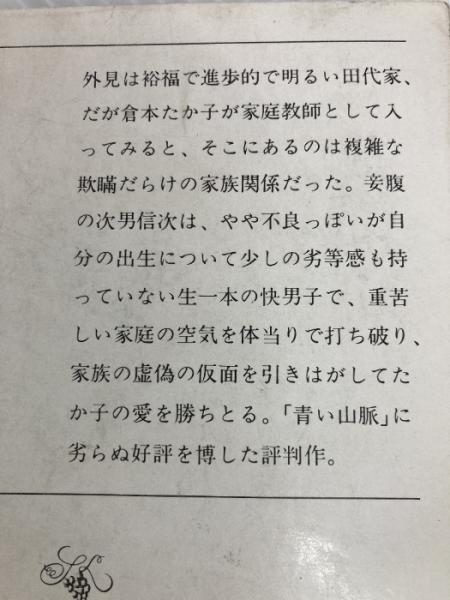 外見は裕福で進歩的で明るい田代家、
だが倉本たか子が家庭教師として入
ってみると、そこにあるのは複雑な
欺瞞だらけの家族関係だった。妾腹
の次男信次は、やや不良っぽいが自
分の出生について少しの劣等感も持
っていない生一本の快男子で、重苦
しい家庭の空気を体当りで打ち破り、
家族の虚偽の仮面を引きはがしてた
か子の愛を勝ちとる。「青い山脈」に
劣らぬ好評を博した評判作。